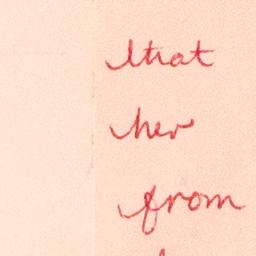 that
her
from